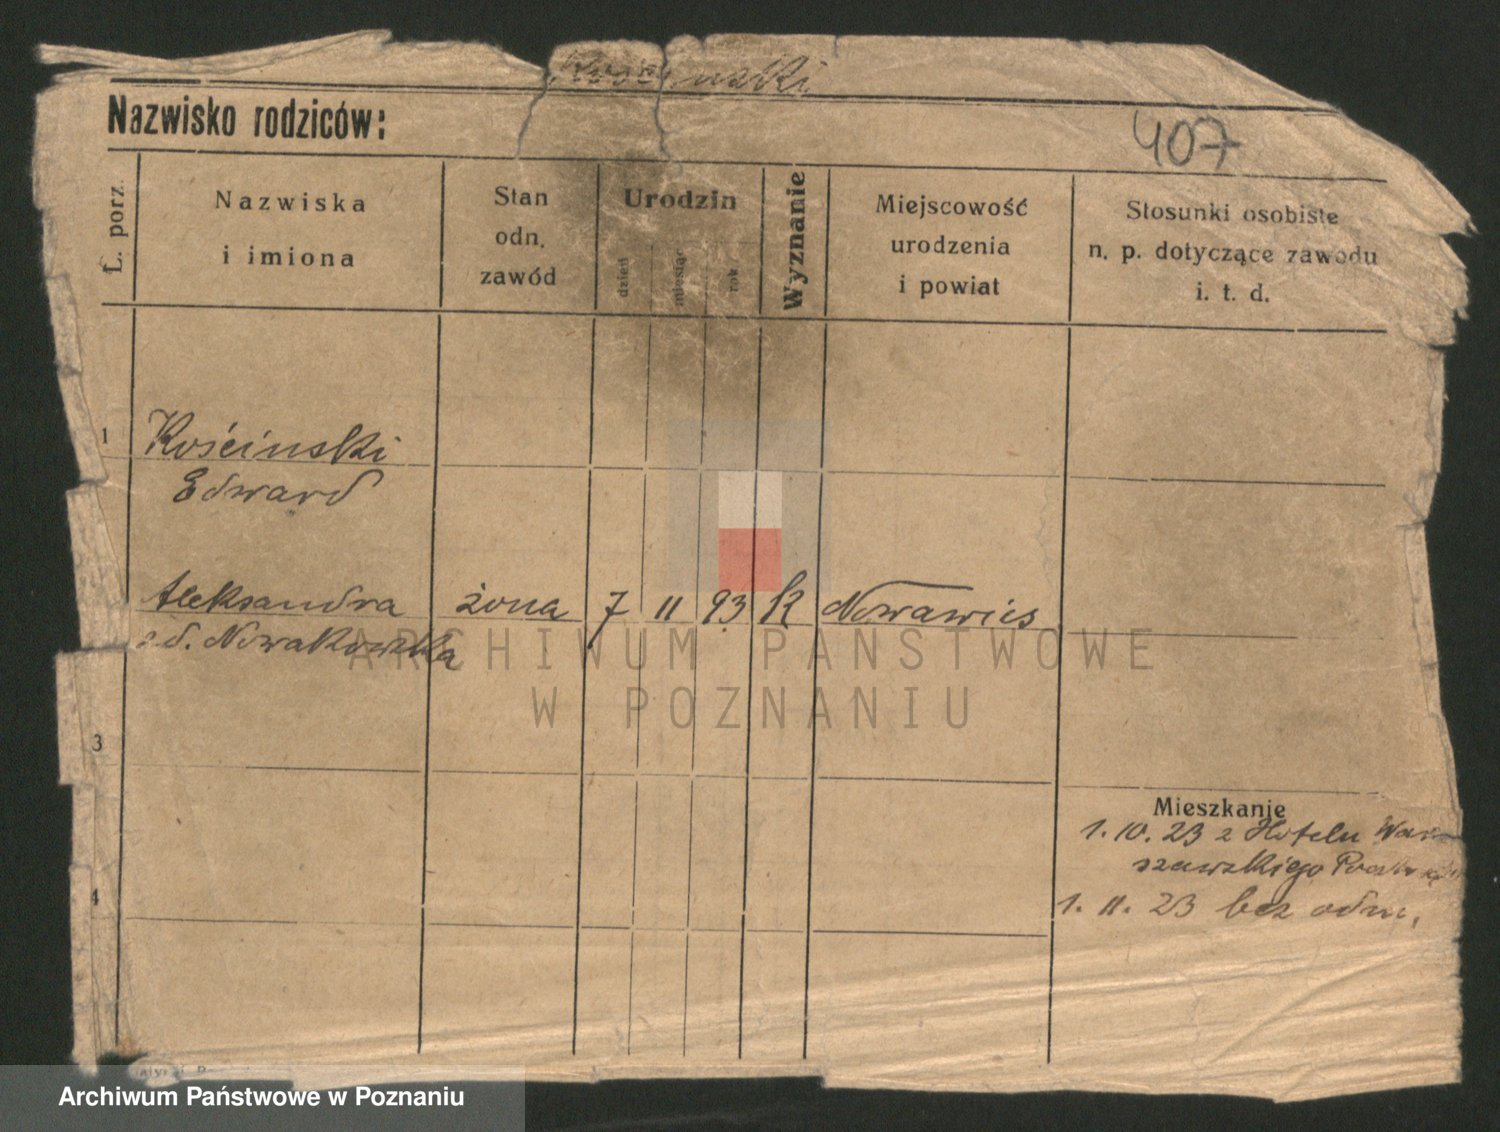 Kościnski
Nazwisko rodziców:
407
L. porz.
Nazwiska
i imiona
Stan
odn.
zawód
Urodzin
dzień
miesiąc
rok
Wyznanie
Miejscowość
urodzenia
i powiat
Stosunki osobiste
n. p. dotyczące zawodu
i. t. d.
1
Kościnski
Edward
Aleksandra żona 7 11 93 K Nowawies
z d. Nowakowska
ARCHIWUM PAŃSTWOWE
W POZNANIU
3
Mieszkanie
1. 10. 23 z Hotelu War-
szawskiego
4
1. 11. 23 bez odm.
Archiwum Państwowe w Poznaniu